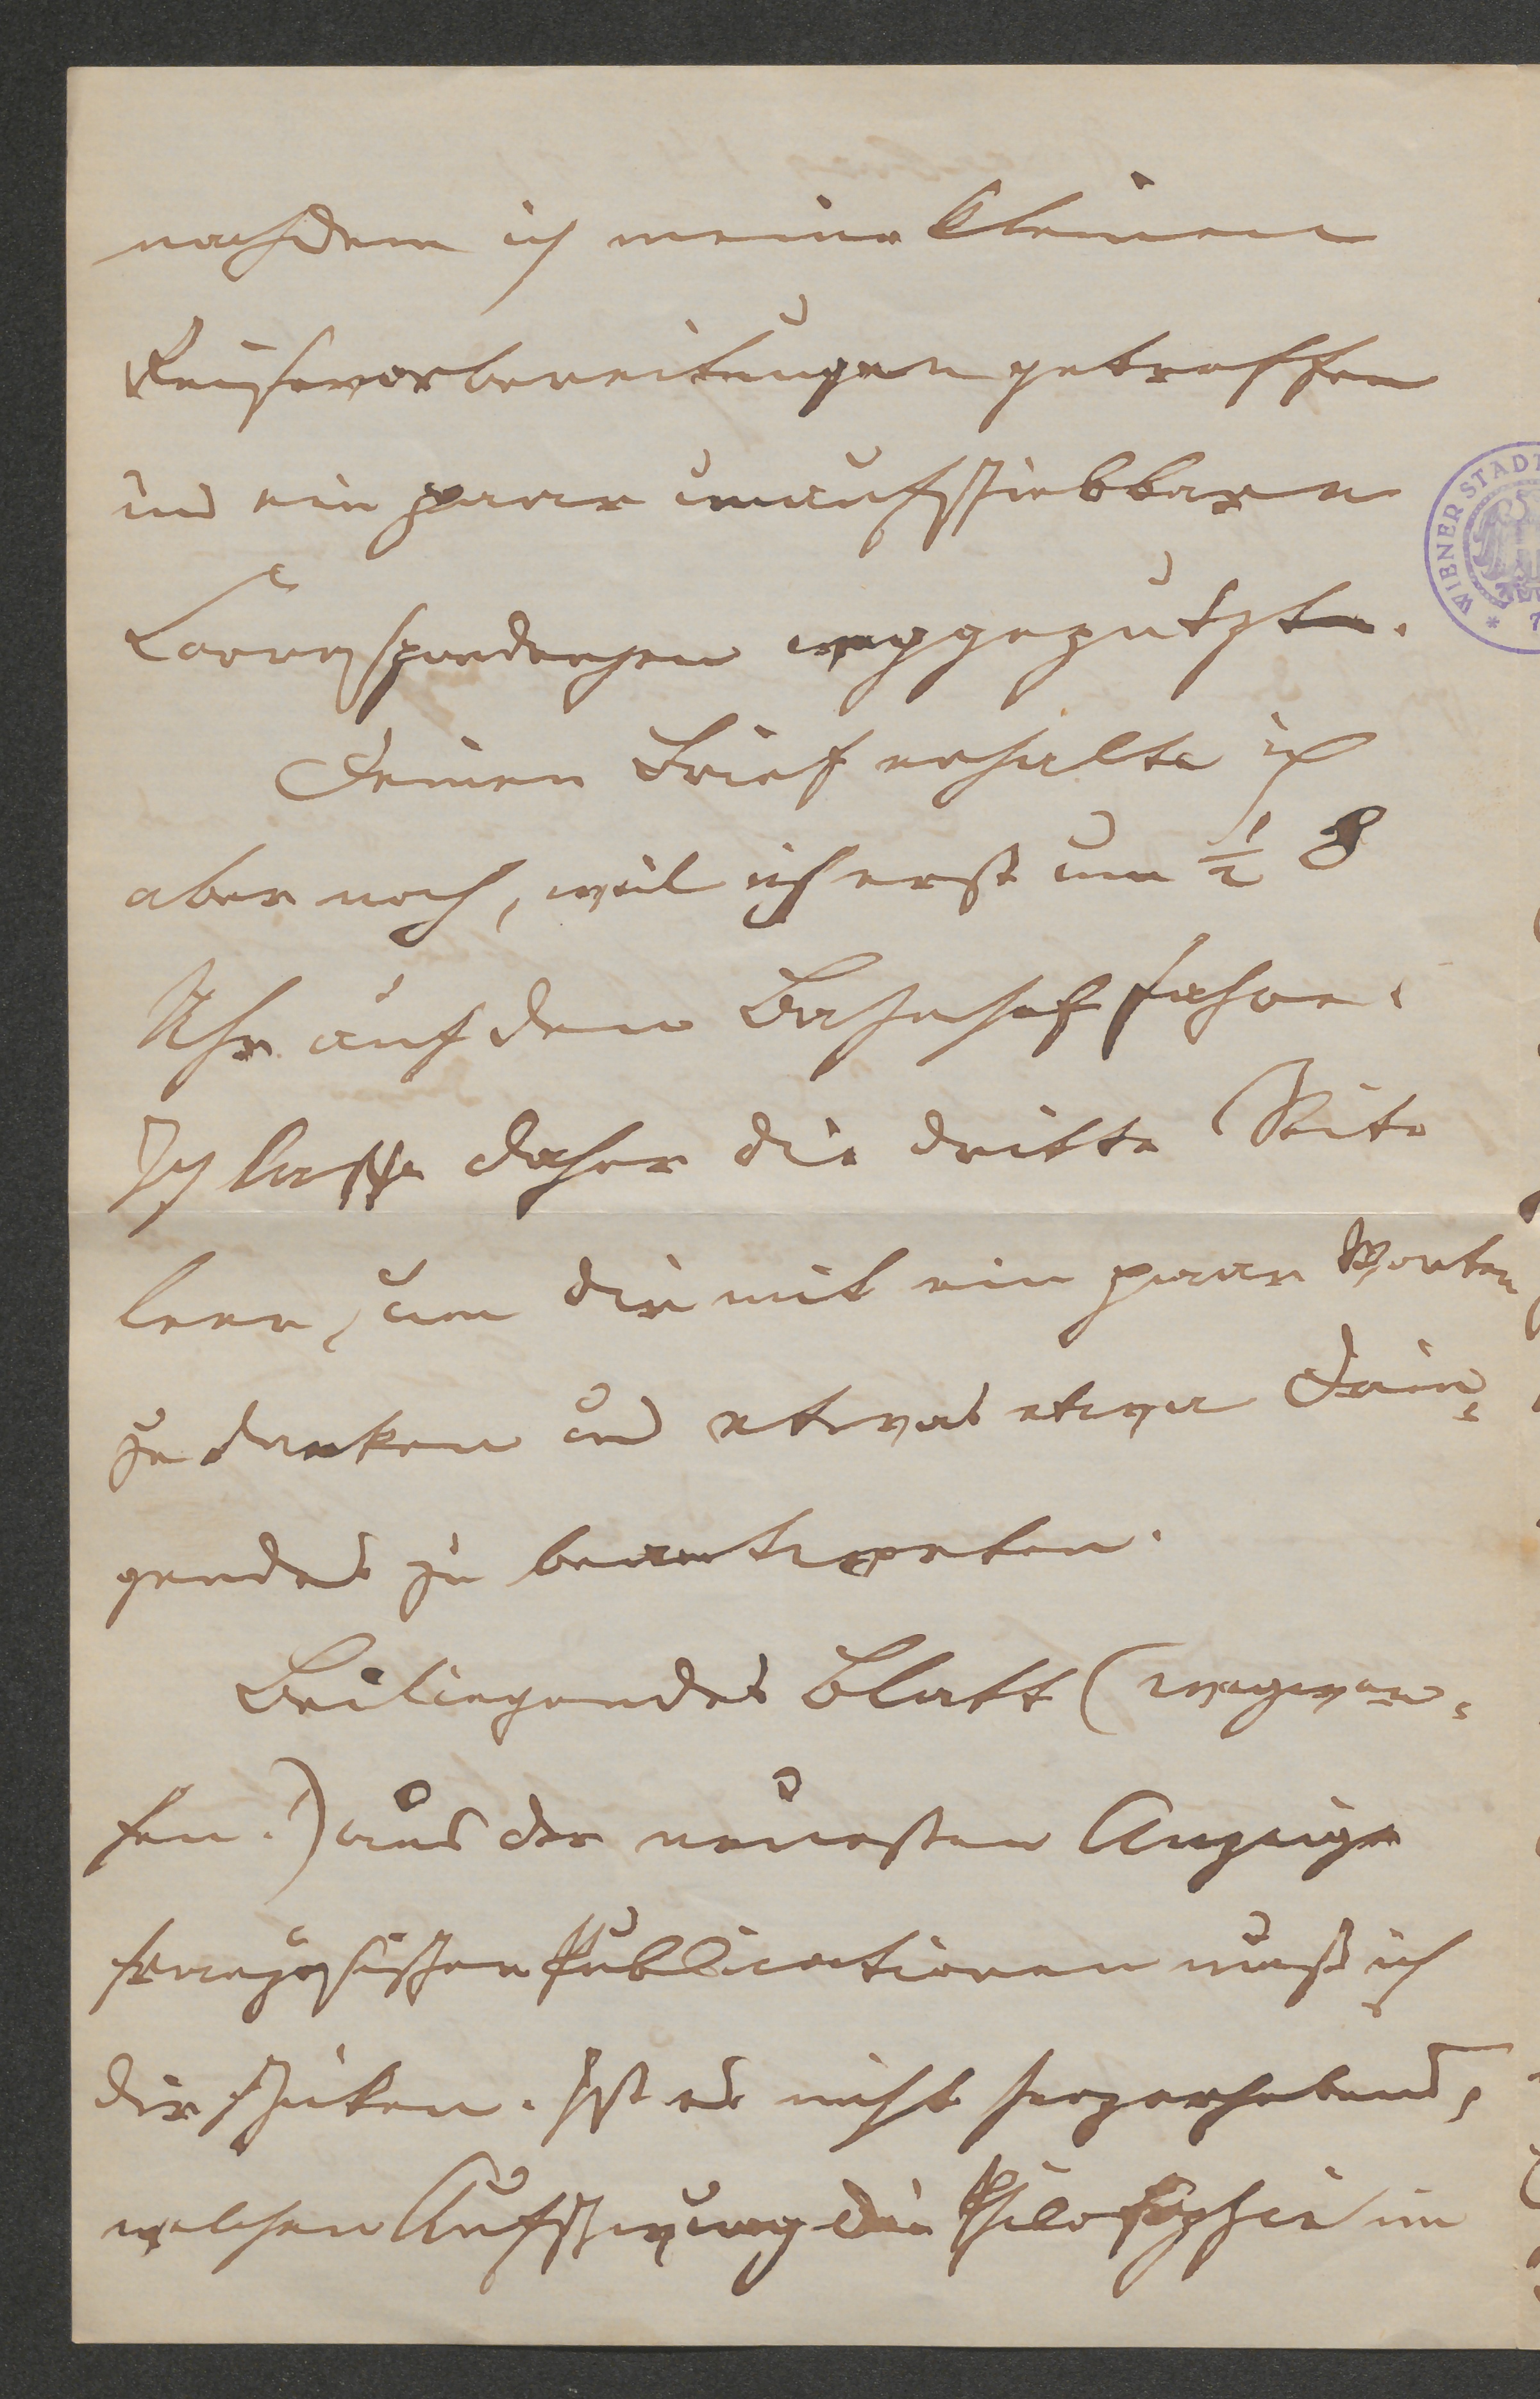 nachdem ich meine kleinen
Reisevorbereitungen getroffen
und ein paar unaufschiebbare
Correspondenzen weggeputzt.
Deinen Brief erhalte ich
aber noch, weil ich erst um ½ 8
Uhr auf den Bahnhof fahre.
Ich lasse daher die dritte Seite
leer, um dir mit ein paar Worten
zu danken und etwas etwa Drin-
gendes zu beantworten.
Beiliegendes Blatt (wegwer-
fen!) aus der neuesten Anzeige
französischer Publicationen muß ich
dir schicken. Ist es nicht herzerhebend,
welchen Aufschwung die Philosophie im
WIENER STADT